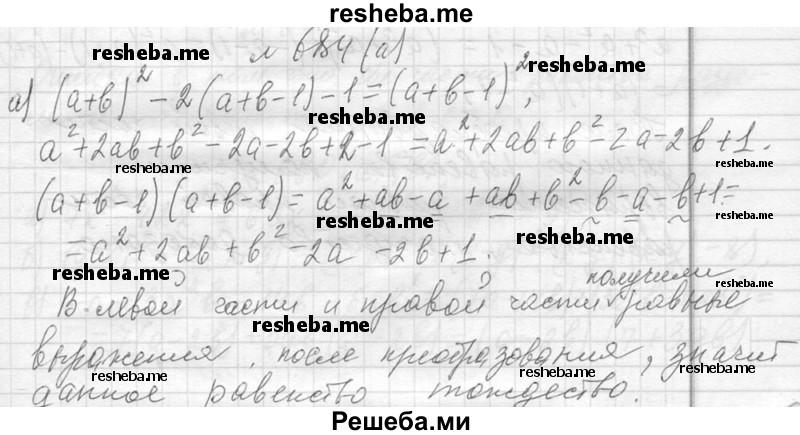 resheba.me
№ 684 (а)
а) (a+b)² - 2(a+b-1) - 1 = (a+b-1)²,
a² + 2ab + b² - 2a - 2b + 2 - 1 = a² + 2ab + b² - 2a - 2b + 1.
(a+b-1)(a+b-1) = a² + ab - a + ab + b² - b - a - b + 1 =
= a² + 2ab + b² - 2a - 2b + 1.
получили
В левой части и правой части равные
выражения, после преобразования, значит
данное равенство тождество.
resheba.me
resheba.me
resheba.me
resheba.me
resheba.me
resheba.me
resheba.me
resheba.me
resheba.me
resheba.me
resheba.me
resheba.me
Решеба.ми